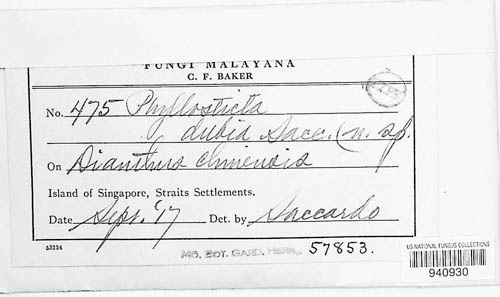 FUNGI MALAYANA
C. F. BAKER
No. 475 Phyllosticta
dubia Sacc. (n. sp.
On Dianthus chinensis
Island of Singapore, Straits Settlements.
Date Sept. '17 Det. by Saccardo
53234
MO. BOT. GARD. HERB. 57853.
US NATIONAL FUNGUS COLLECTIONS
940930